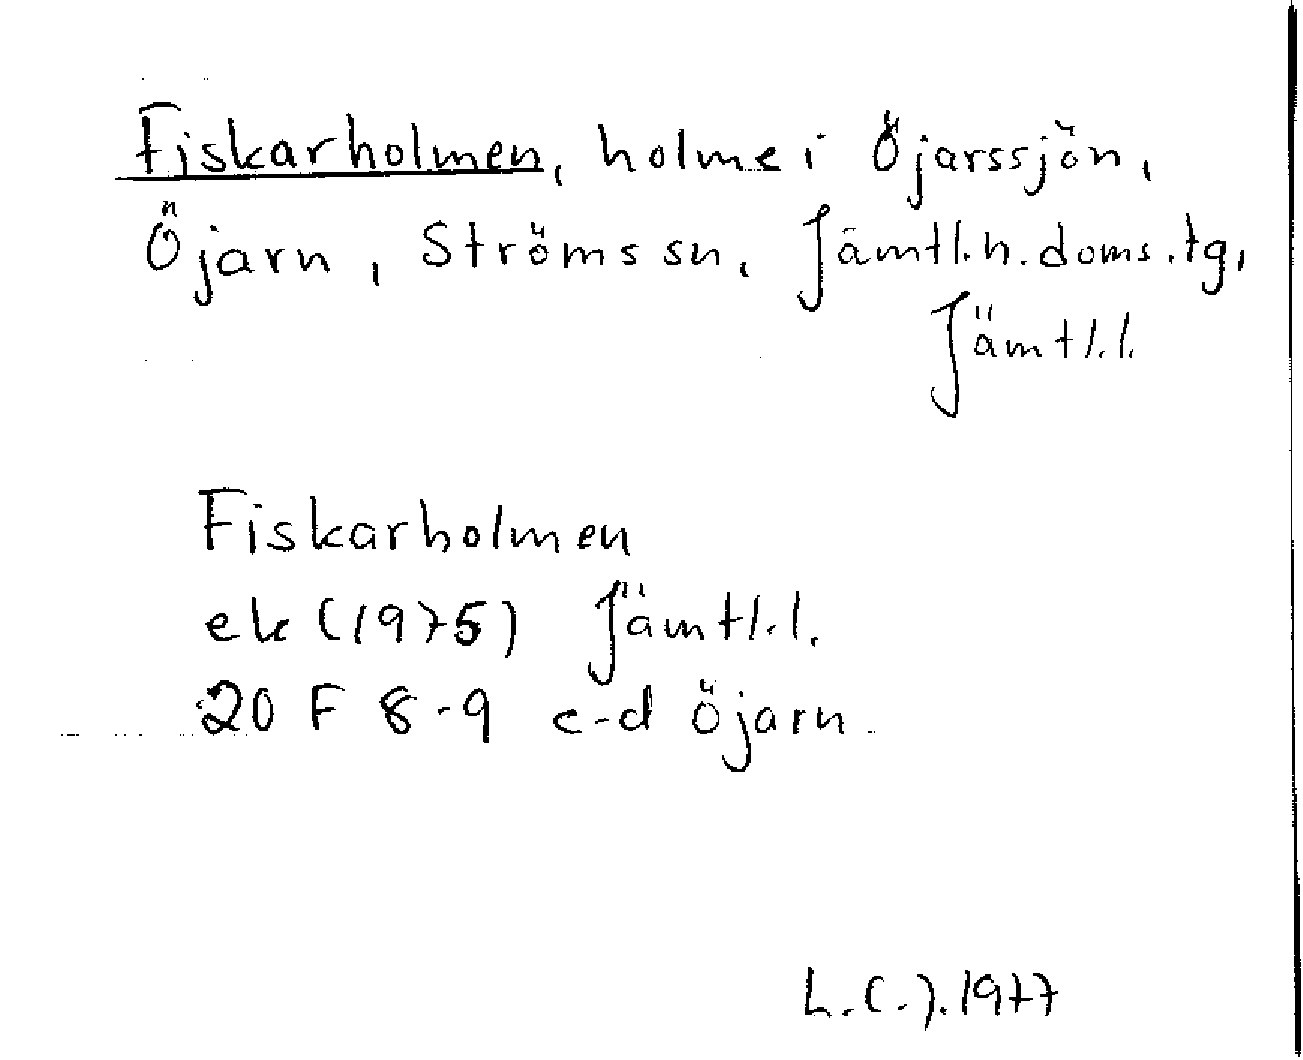 Fiskarholmen, holme i Öjarssjön,
Öjarn, Ströms sn, Jämtl.n.doms.tg,
Jämtl.l.
Fiskarholmen
ek (1975) Jämtl.l.
20 F 8-9 c-d Öjarn
1977